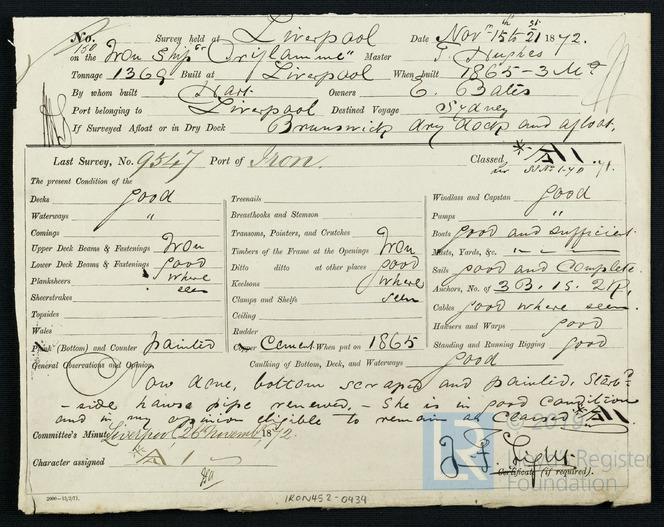 No. 150 Survey held at Liverpool Date Novr 15th 21st 1872.
on the Iron Ship or "Oriflamme" Master T Hughes
Tonnage 1369 Built at Liverpool When built 1865 - 3 Mo
By whom built Hart Owners E. Bates
Port belonging to Liverpool Destined Voyage Sydney
If Surveyed Afloat or in Dry Dock Brunswick dry dock and afloat.
Last Survey, No. 9547 Port of Iron. Classed
The present Condition of the
Decks good
Waterways "
Comings
Upper Deck Beams & Fastenings Iron
Lower Deck Beams & Fastenings good
Planksheers where
Sheerstrakes seen
Topsides
Wales
Plank (Bottom) and Counter painted
Treenails
Breasthooks and Stemson
Transoms, Pointers, and Crutches
Timbers of the Frame at the Openings Iron
Ditto ditto at other places good
Keelsons where
Clamps and Shelfs seen
Ceiling
Rudder
Copper Cement When put on 1865
Windlass and Capstan good
Pumps "
Boats good and sufficient.
Masts, Yards, &c. " "
Sails good and Complete.
Anchors, No. of 3 B. 1 S. 2 K.
Cables good where seen
Hawsers and Warps good
Standing and Running Rigging good
General Observations and Opinion, Caulking of Bottom, Deck, and Waterways good
Now done, bottom scraped and painted. Starbd
-side hawse pipe renewed, - She is in good condition
and in my opinion eligible to remain as Classed *A1
Committee's Minute Liverpool, 26 November 1872.
Character assigned *A 1
Certificate (if required).
2000-12/2/71.
IRON452-0434
© 2019
Lloyd's Register
Foundation
LR